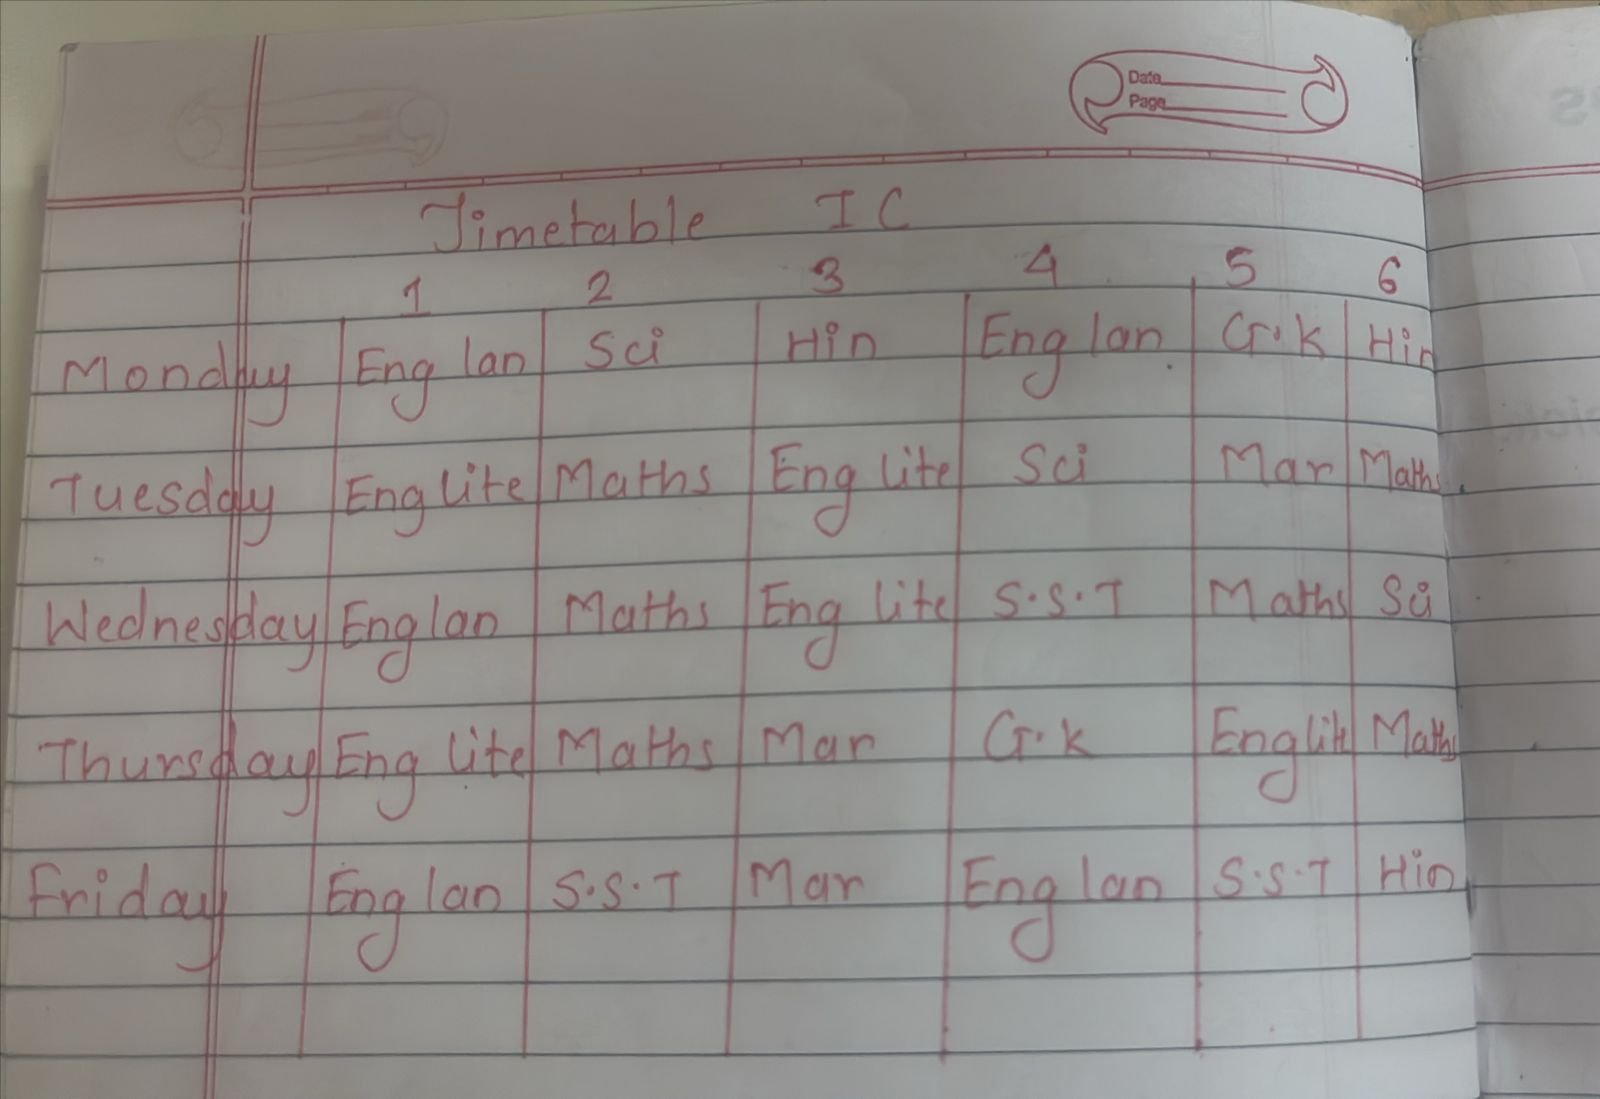 Date
Page
Timetable I C
1 2 3 4 5 6
Monday Eng lan Sci Hin Eng lan G.K Hin
Tuesday Eng lite Maths Eng lite Sci Mar Maths
Wednesday Eng lan Maths Eng lite S.S.T Maths Sci
Thursday Eng lite Maths Mar G.K Eng lite Maths
Friday Eng lan S.S.T Mar Eng lan S.S.T Hin